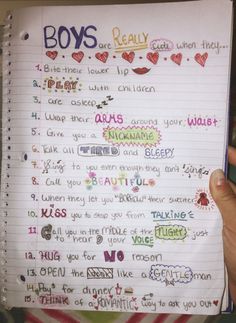 BOYS are REALLY cute when they...
1. Bite their lower lip
2. PLAY with children
3. are asleep zzz
4. Wrap their ARMS around your WAIST
5. Give you a NICKNAME
6. talk all TIRED and SLEEPY
7. Sing to you even though they can't "sing"
8. Call you BEAUTIFUL
9. When they let you "BORROW" their sweater
10. KISS you to stop you from TALKING
11. Call you in the MIDDLE of the NIGHT just
to "hear your VOICE
12. HUG you for NO reason
13. OPEN the DOOR like a GENTLEman
14. Pay for dinner
15. THINK of a ROMANTIC way to ask you out